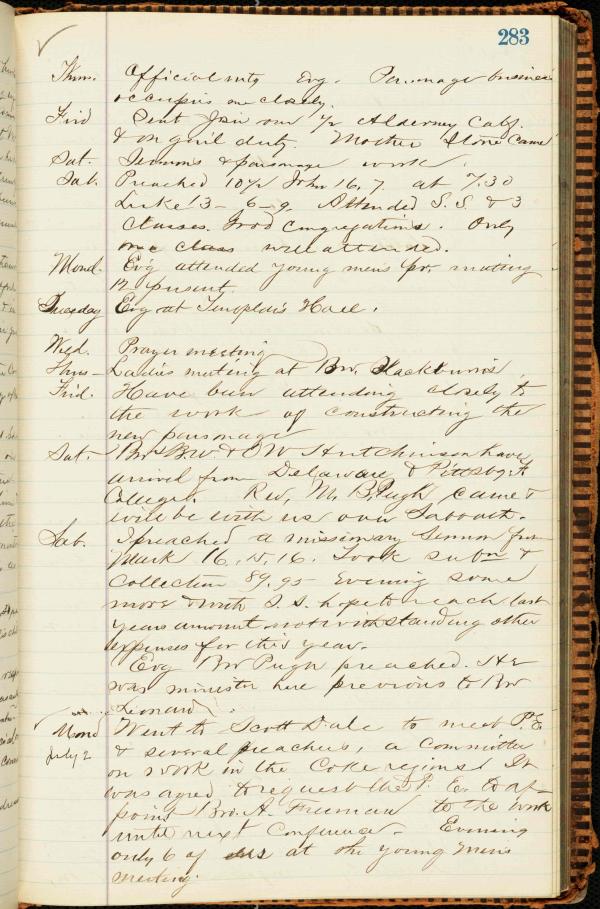 283
Thur. Official mtg Evg. Parsonage business
occupies me closely.
Frid Sent Jain our 1/2 Alderney Calf.
& on gen'l duty. Mother Stone came
Sat. Sermons & parsonage work.
Sab. Preached 10 1/2 John 16, 7. at 7.30
Luke 13 - 6-9. Attended S.S. & 3
classes. Good congregations. Only
one class well attended.
Mond. Ev'g attended young men's pr. meeting
12 present.
Tuesday Evg at Hall.
Wed. Prayer meeting
Thur - Ladies meeting at Bro. Blackburn's.
Frid. Have been attending closely to
the work of constructing the
new parsonage
Sat - Bros BW & OW Hutchinson have
arrived from Delaware & Pittsbg. F.
Colleges. Rev, M. B. Pugh came &
will be with us over Sabbath.
Sab. I preached a missionary sermon from
Mark 16, 15, 16. Took subn &
Collection 89.95 Evening some
more & with S.S. hope to reach last
years amount notwithstanding other
expenses for this year.
Evg Bro Pugh preached. He
was minister here previous to Bro
Leonard.
Mond Went to Scott Dale to meet P.E
July 2 & several preachers, a Committee
on work in the Coke regions. It
was agreed to request the P. E. to ap-
point Bro. A. Freeman to the work
until next Conference - Evening
only 6 of us at the young men's
meeting.